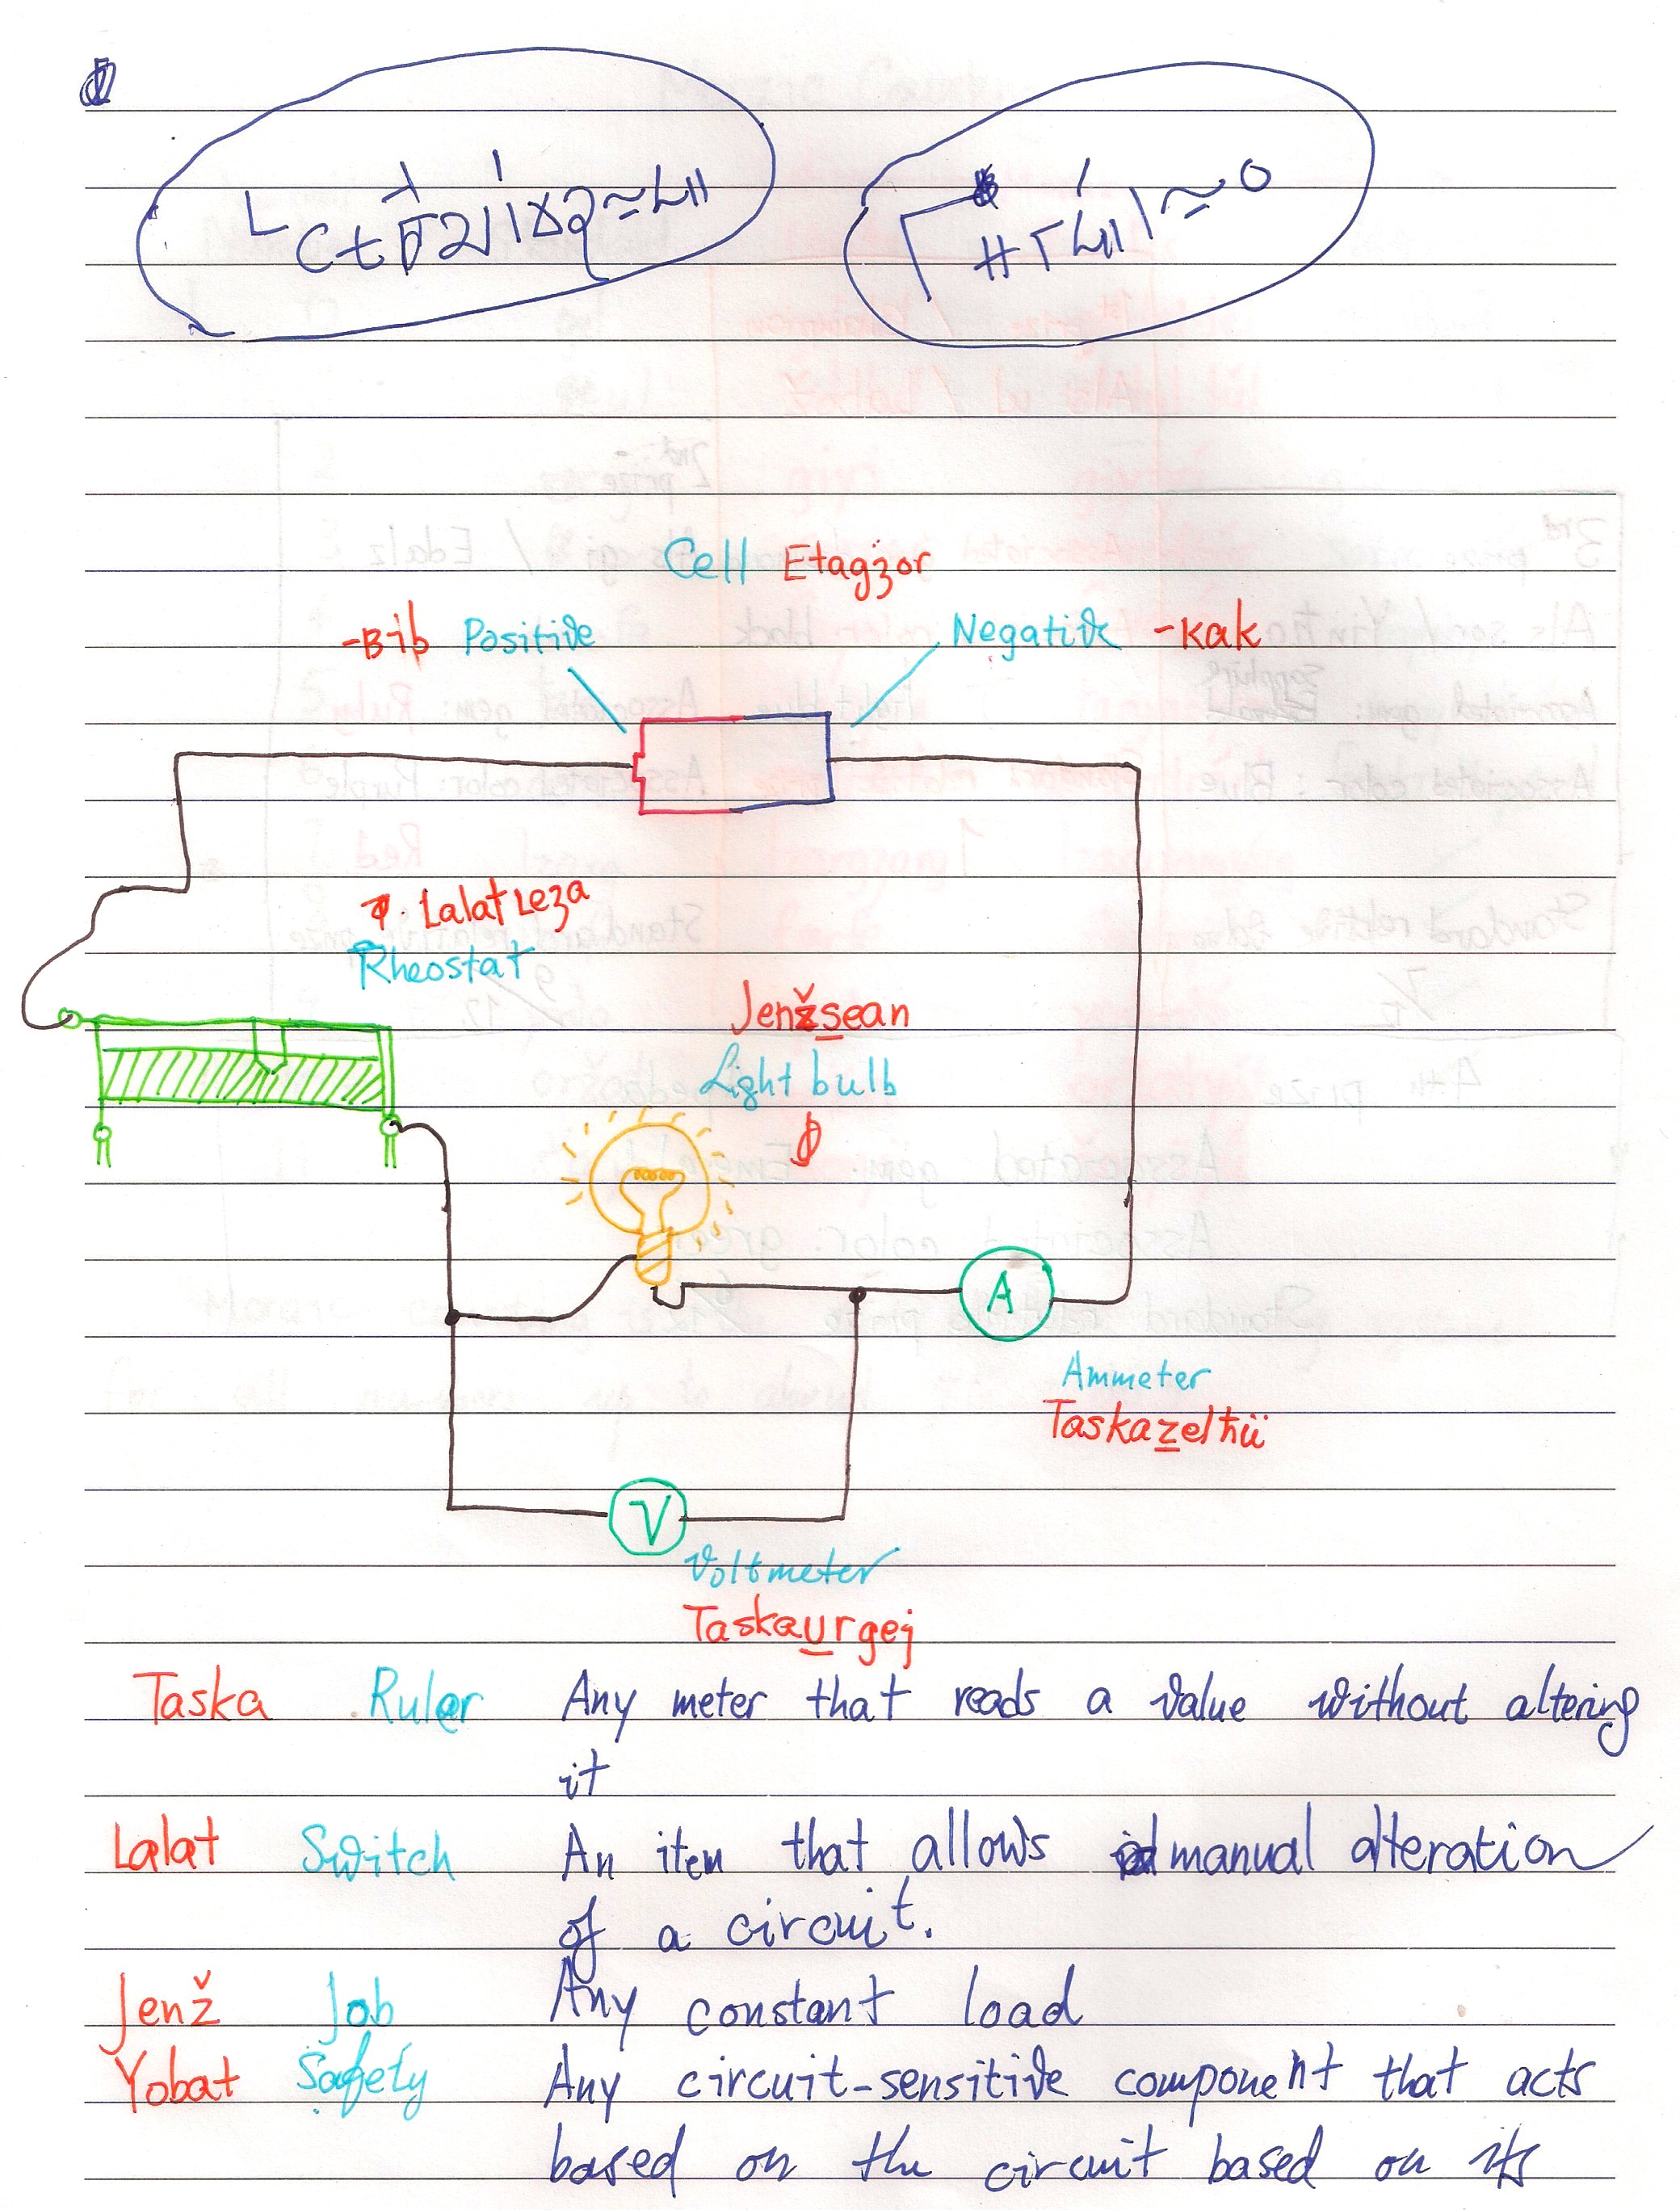 Cell Etagzor
-Bib Positive Negative -Kak
Lalat Leza
Rheostat
Jenžsean
Light bulb
A
Ammeter
Taskazelħü
V
Voltmeter
Taskaurgej
Taska Ruler Any meter that reads a value without altering
it
Lalat Switch An item that allows manual alteration
of a circuit.
Jenž Job Any constant load
Yobat Safety Any circuit-sensitive component that acts
based on the circuit based on its